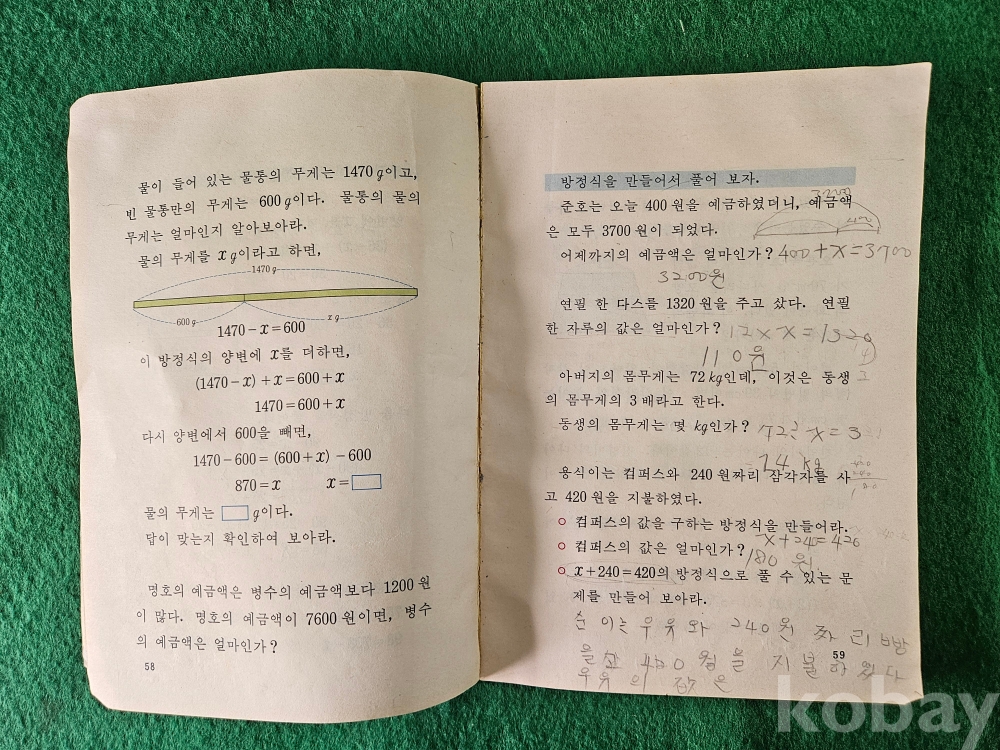 물이 들어 있는 물통의 무게는 1470 g이고,
빈 물통만의 무게는 600 g이다. 물통의 물의
무게는 얼마인지 알아보아라.
물의 무게를 x g이라고 하면,
1470 g
600 g x g
1470-x=600
이 방정식의 양변에 x를 더하면,
(1470-x)+x=600+x
1470=600+x
다시 양변에서 600을 빼면,
1470-600=(600+x)-600
870=x x=□
물의 무게는 □ g이다.
답이 맞는지 확인하여 보아라.
명호의 예금액은 병수의 예금액보다 1200 원
이 많다. 명호의 예금액이 7600 원이면, 병수
의 예금액은 얼마인가?
58
방정식을 만들어서 풀어 보자.
준호는 오늘 400 원을 예금하였더니, 예금액
은 모두 3700 원이 되었다.
400
어제까지의 예금액은 얼마인가? 400+x=3700
3200원
연필 한 다스를 1320 원을 주고 샀다. 연필
한 자루의 값은 얼마인가? 12×x=1320
110원
아버지의 몸무게는 72 kg인데, 이것은 동생
의 몸무게의 3 배라고 한다.
동생의 몸무게는 몇 kg인가? 72÷x=3
24 kg
용식이는 컴퍼스와 240 원짜리 삼각자를 사
고 420 원을 지불하였다.
컴퍼스의 값을 구하는 방정식을 만들어라.
x+240=420
컴퍼스의 값은 얼마인가? 180 원
x+240=420의 방정식으로 풀 수 있는 문
제를 만들어 보아라.
순이는 우유와 240원 짜리 빵
을 420원을 지불하였다
우유의 값은
59
kobay